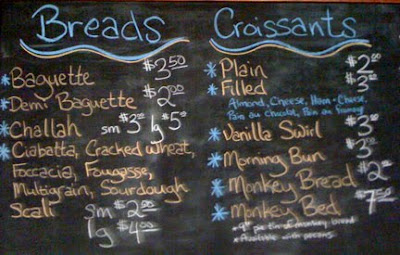 Breads
*Baguette $3.50
*Demi Baguette $2.00
*Challah sm $3.00 lg $5.00
*Ciabatta, Cracked wheat,
Foccacia, Fougasse,
Multigrain, Sourdough
Scali sm $2.00
lg $4.00
Croissants
*Plain $2.00
*Filled $3.00
Almond, Cheese, Ham-Cheese,
Pain au chocolat, Pain au
*Vanilla Swirl $3.00
*Morning Bun $3.00
*Monkey Bread $2.00
*Monkey Bed $7.50
*9" pie tin of monkey bread
*Available with pecans